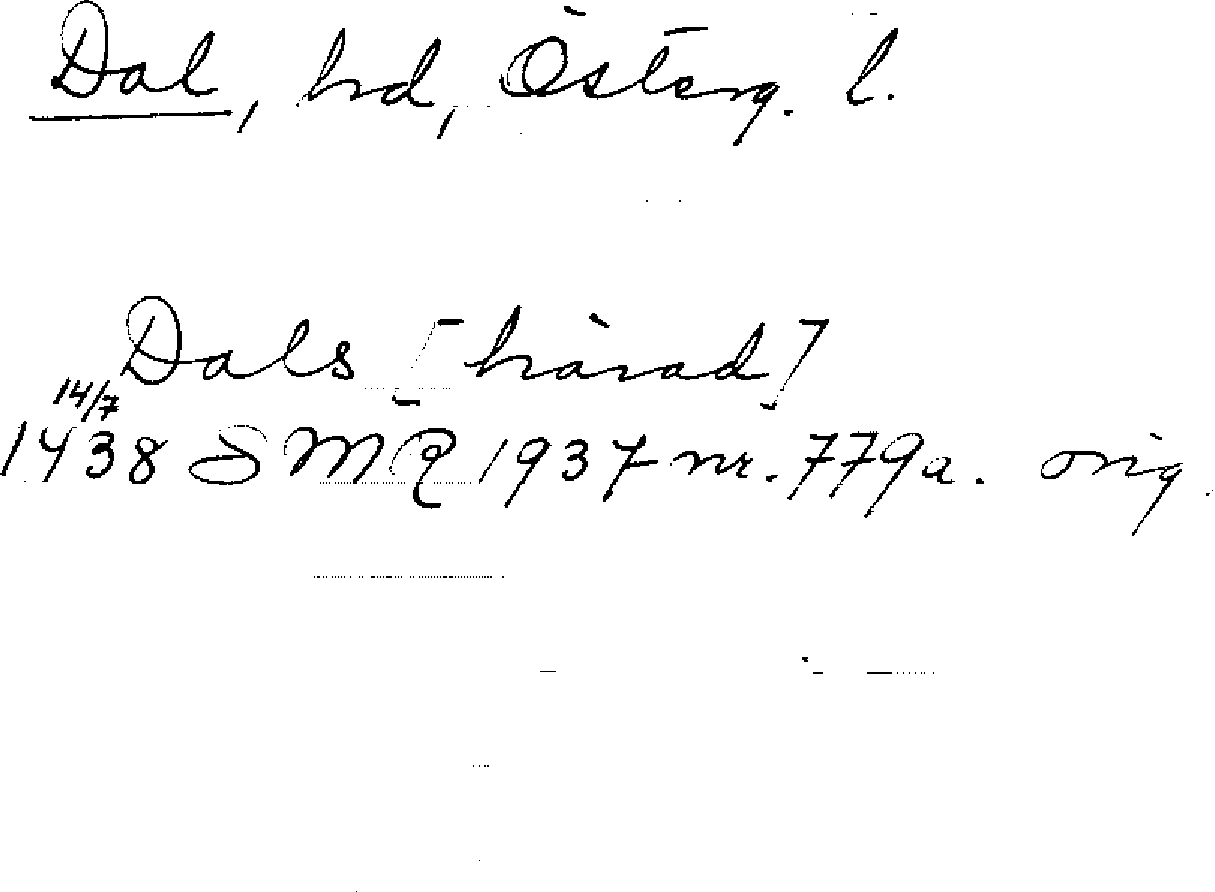 Dal, hd, Österg. l.
Dals [härad]
14/7
1438 SMR 1937 nr. 779a. orig.